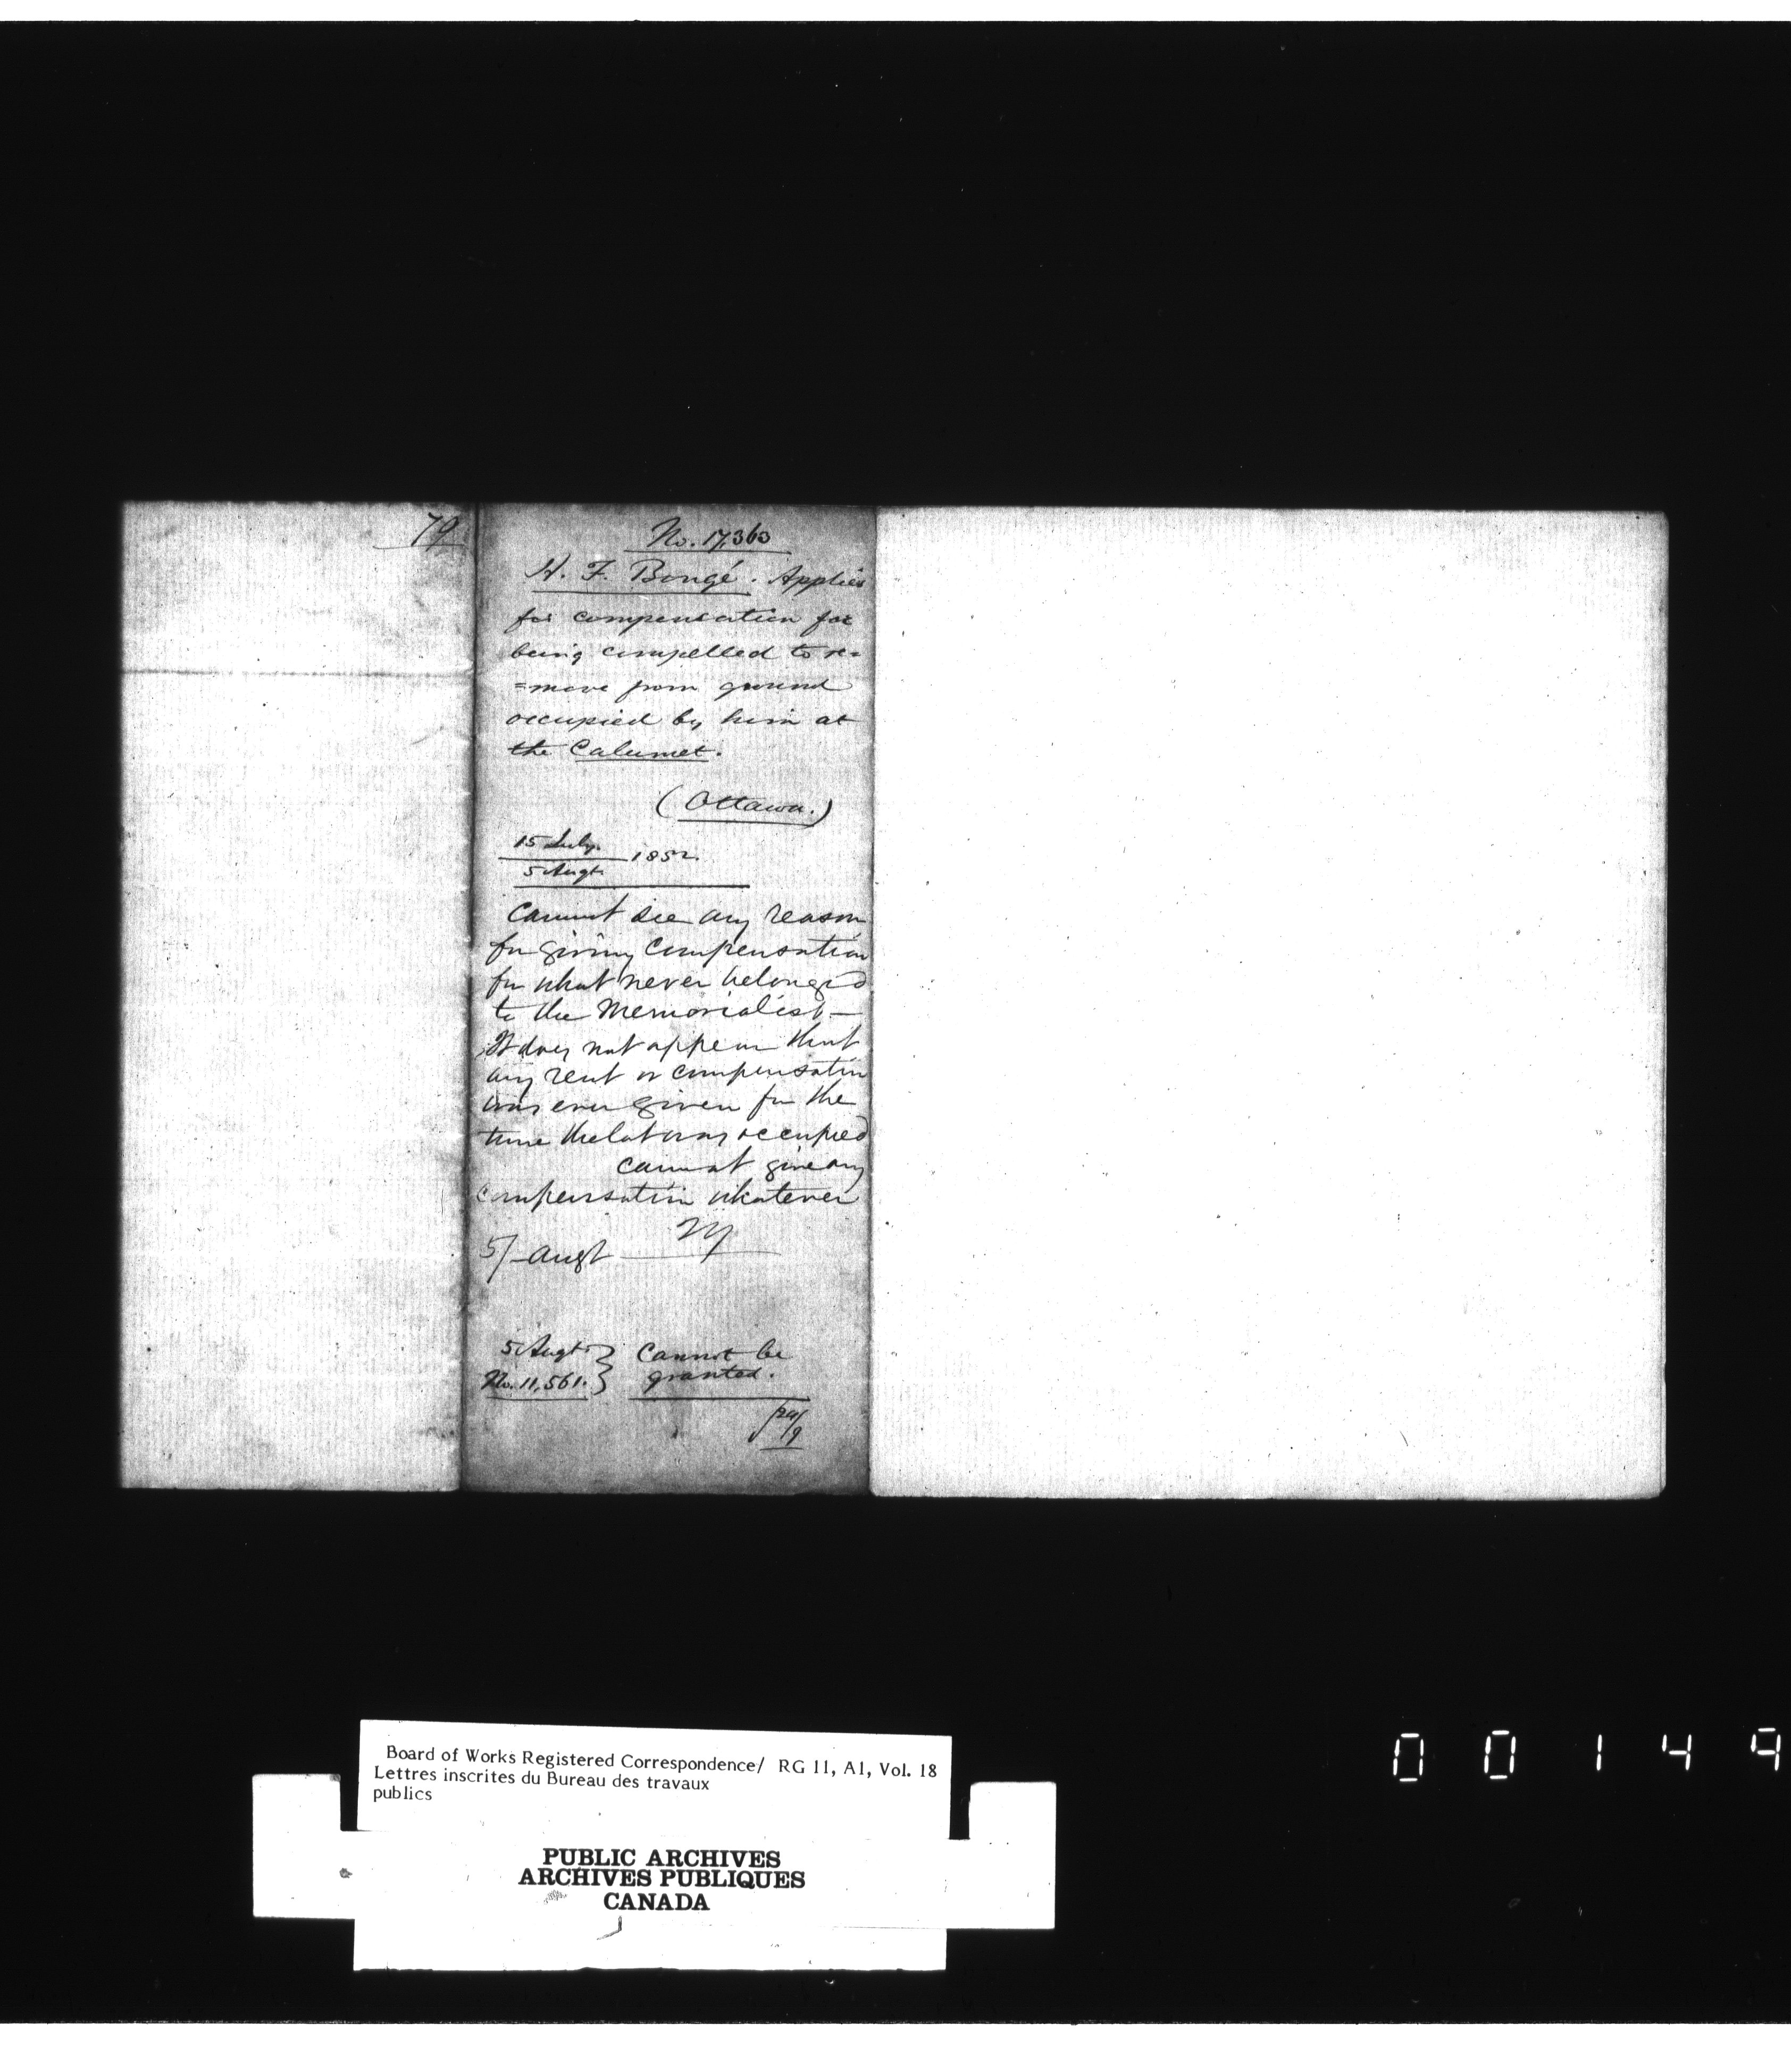 79
No. 17,363
H. F. Bongé. Applies
for compensation for
being compelled to re=
=move from ground
occupied by him at
the Calumet.
(Ottawa.)
15 July.
1852.
5 Augt
Cannot see any reason
for giving compensation
for what never belonged
to the Memorialist —
It does not appear that
any rent or compensation
was ever given for the
time the lot was occupied
cannot give any
compensation whatever
5/ Augt
5 Augt } Cannot be
No. 11,561. } granted.
Board of Works Registered Correspondence/ RG 11, A1, Vol. 18
Lettres inscrites du Bureau des travaux
publics
PUBLIC ARCHIVES
ARCHIVES PUBLIQUES
CANADA
0 0 1 4 9